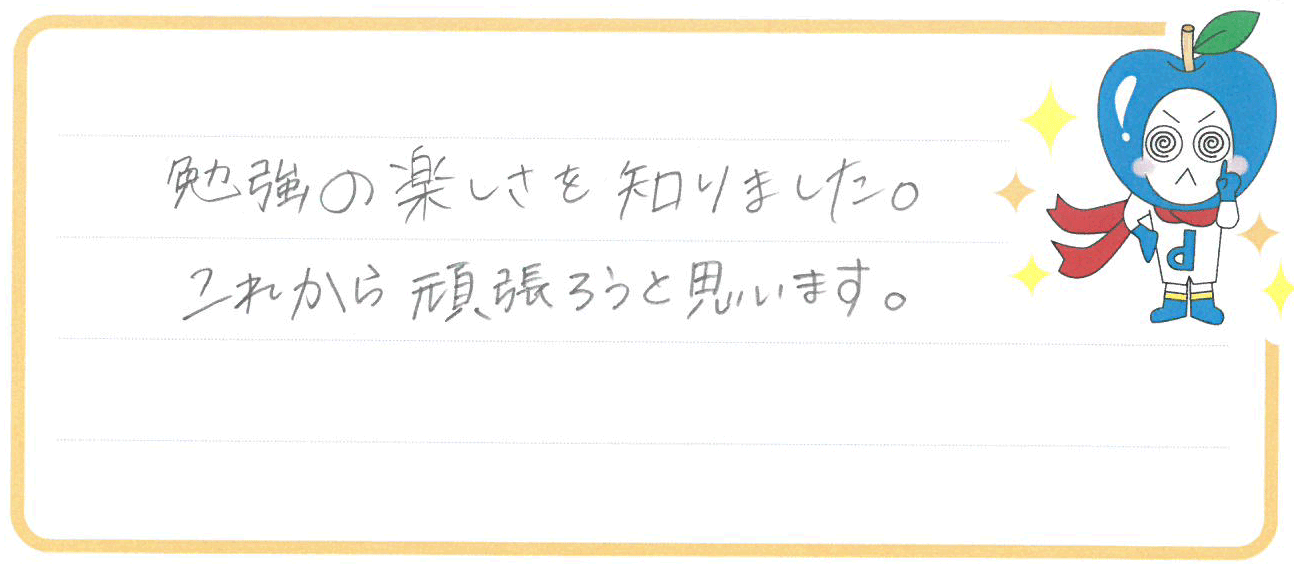 勉強の楽しさを知りました。
これから頑張ろうと思います。